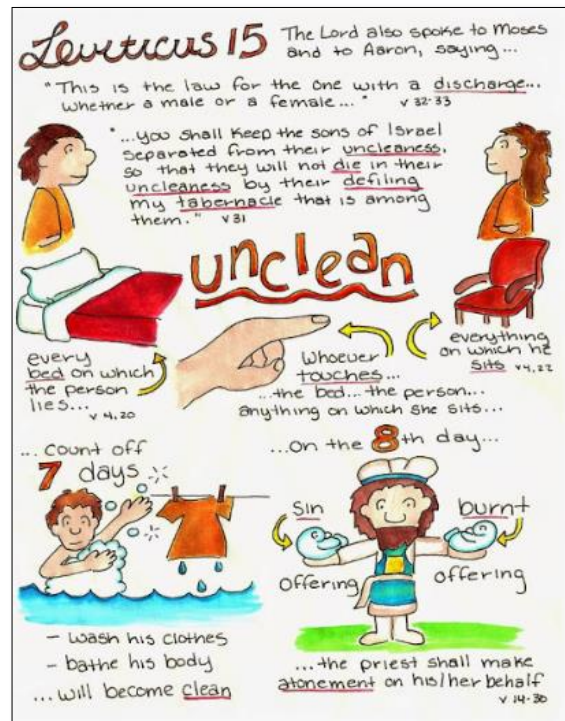 Leviticus 15
The Lord also spoke to Moses
and to Aaron, saying...
"This is the law for the one with a discharge...
whether a male or a female..." v 32-33
"...you shall keep the sons of Israel
separated from their uncleaness,
so that they will not die in their
uncleaness by their defiling
my tabernacle that is among
them." v 31
unclean
every
bed on which
the person
lies...
v 4, 20
Whoever
touches...
...the bed... the person...
anything on which she sits...
everything
on which he
sits v 4, 22
... count off
7 days
- wash his clothes
- bathe his body
... will become clean
...on the 8th day...
Sin
offering
burnt
offering
...the priest shall make
atonement on his/her behalf
v 14-30